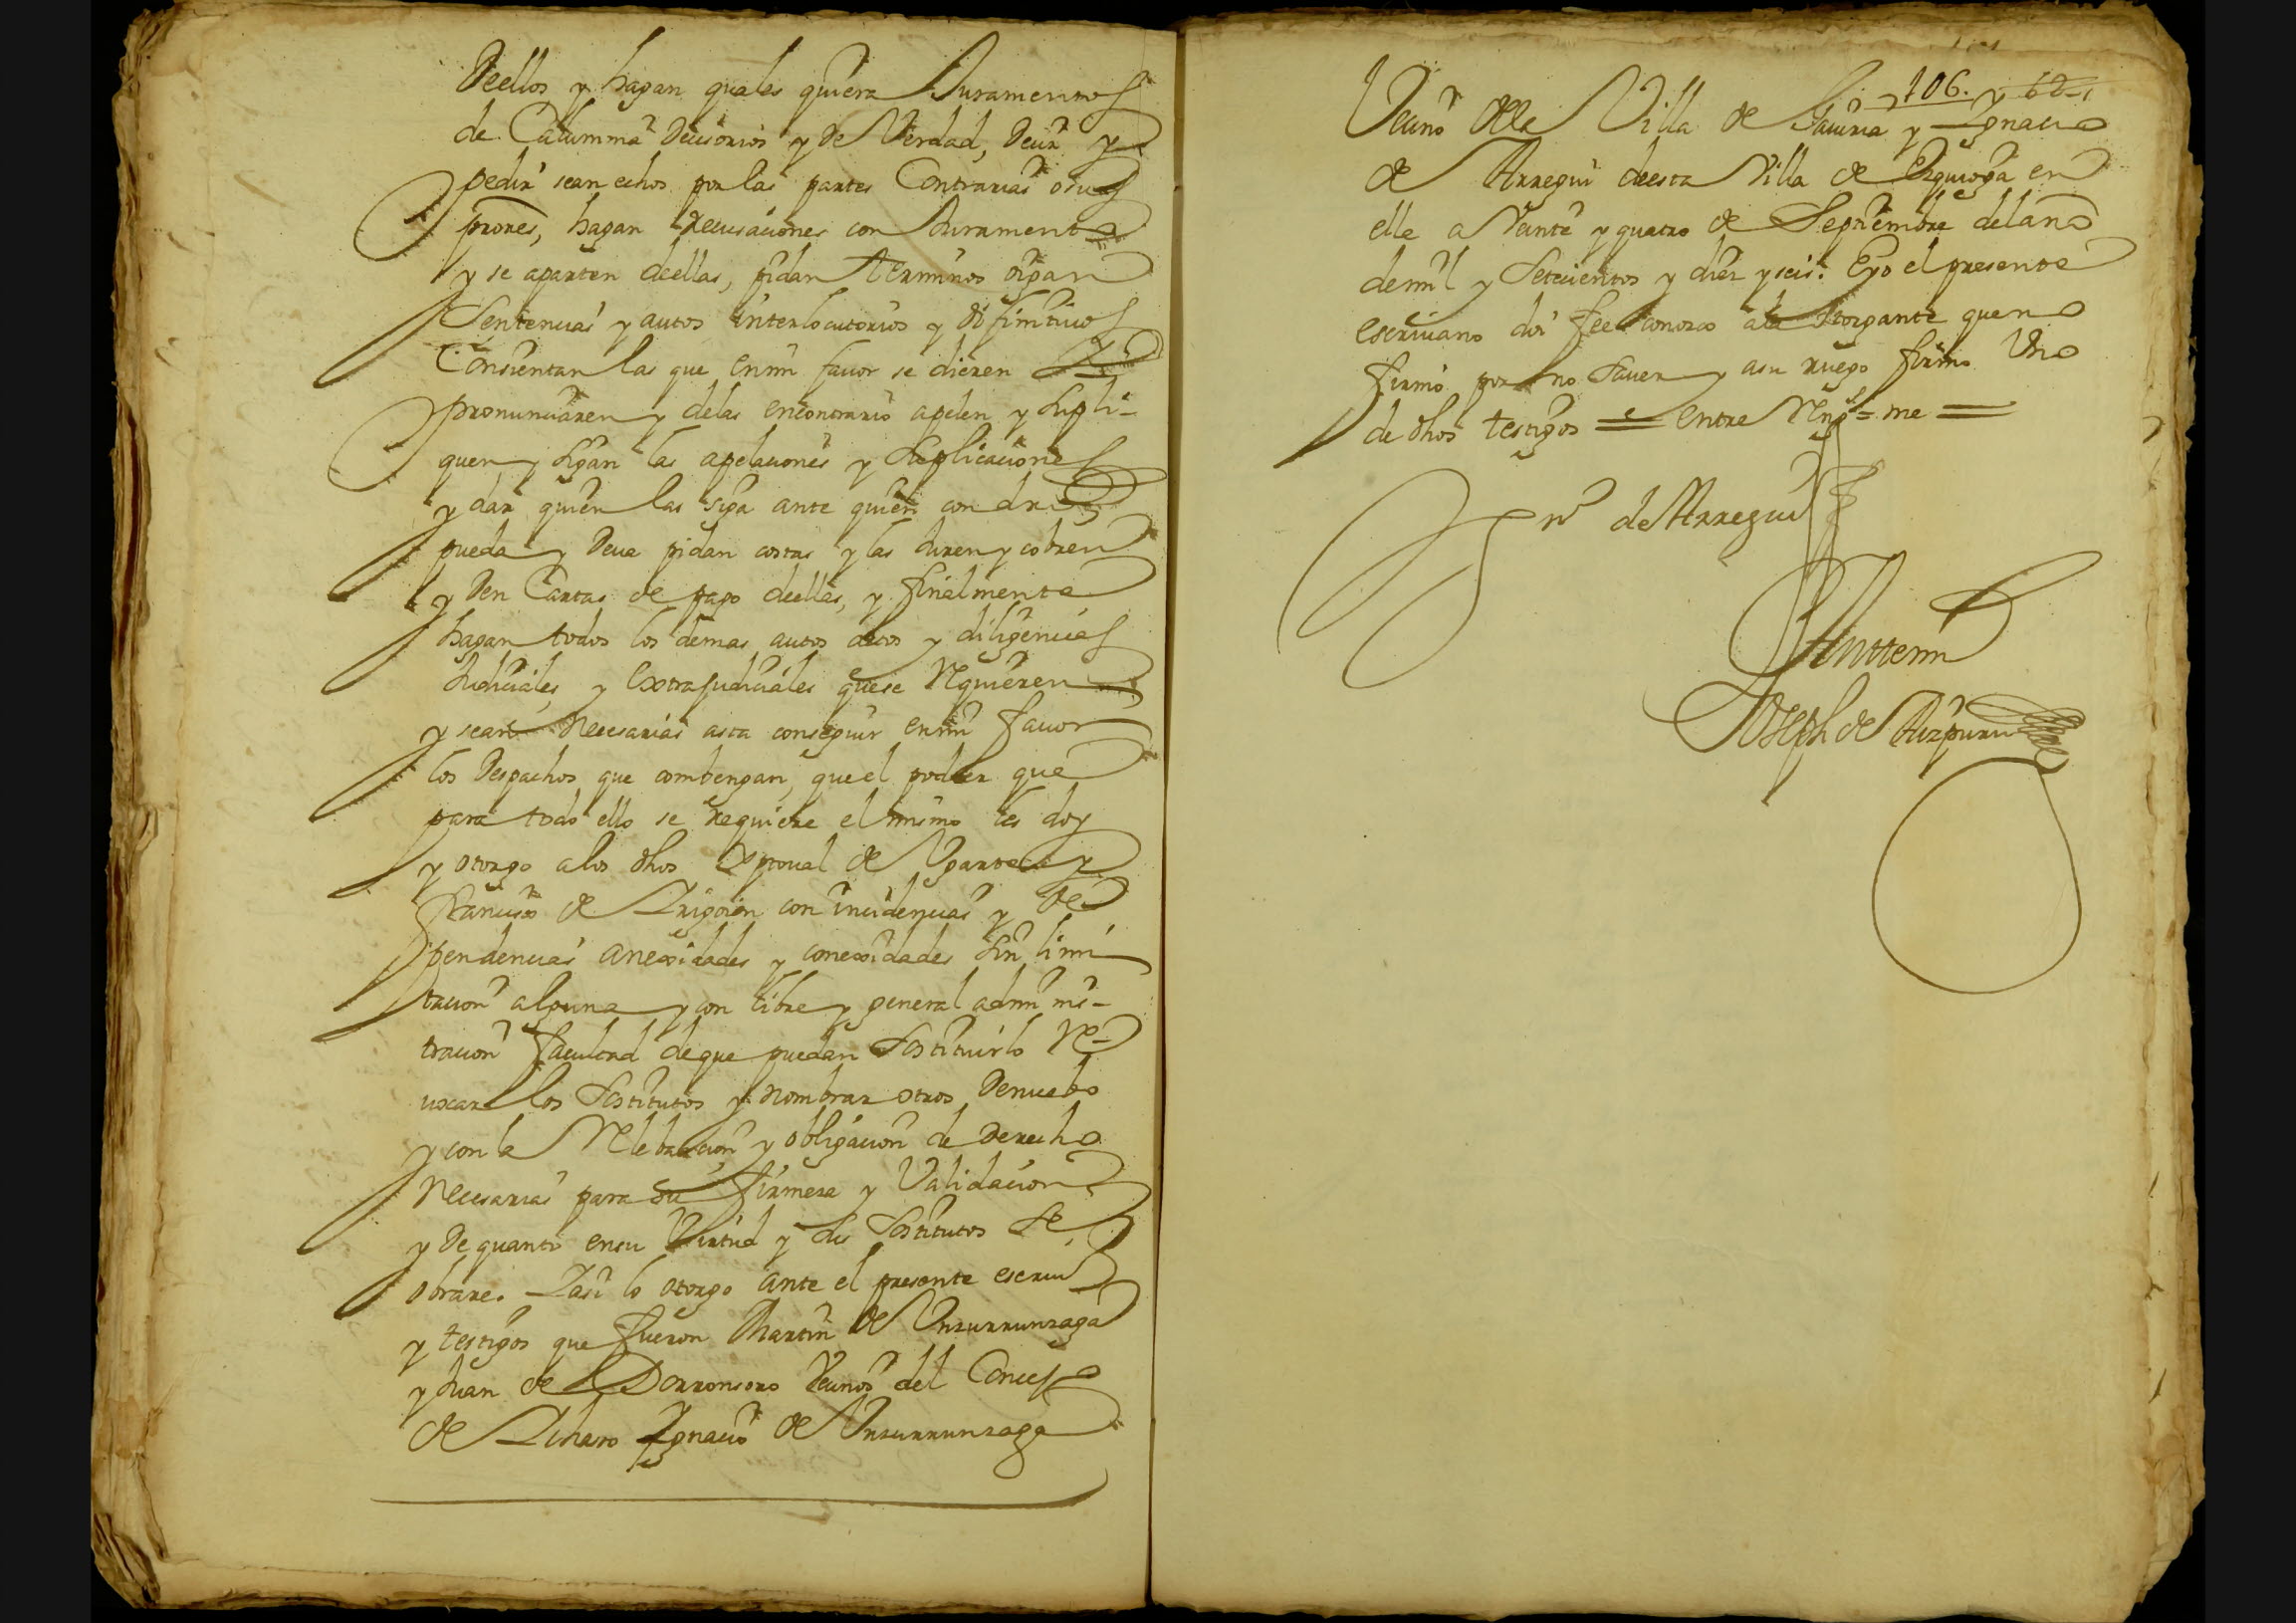 Deellos y hagan quales quiera Juramentos
de Calumnia Decisorios y De Verdad, Decir y
pedir sean echos por las partes Contrarias o sus
prores, hagan Recusaciones con Juramento
y se aparten deellas, pidan terminos oigan
Sentencias y autos interlocutorios y difinitivos
Consientan las que enmi favor se dieren y
pronunciaren y delas encontrario apelen y supli-
quen y sigan las apelaciones y suplicaciones
y dar quien las siga ante quien con dro
pueda y Deva pidan costas y las Juren y cobren
y Den Cartas de pago deellas, y finalmente
hagan todos los demas autos actos y diligencias
Judiciales, y extrajudiciales quese Requieren
y sean Necesarias asta conseguir enmi favor
los Despachos que combengan, que el poder que
para todo ello se requiere el mismo les doy
y otorgo alos dhos Xptoual de Ugarte y
francisco de Irigoien con incidencias y de
pendencias anexidades y conexidades sin limi
tacion alguna y con libre y general adminis-
tracion facultad deque puedan Sostituirlo Re-
uocar los Sostitutos y nombrar otros Denuebo
y con la Relebacion y obligacion de Derecho
Necesarias para su firmeza y Validacion
y De quanto ensu Virtud y sus Sostitutos se
obrare. Iasi lo otorgo ante el presente escriu
y testigos que fueron Martin de Unzurrunzaga
y Juan de Dorronsoro Vecinos del Concejo
de Licharo Ignacio de Unzurrunzaga
106.
Vecino dela Villa de y Ignacio
de Arregui deesta Villa de Ezquioga en
ella a Veinte y quatro de Septiembre delano
demil y Setecientos y diez y seis. Eyo el presente
escriuano doi fee conozco ala otorgante queno
firmo por no Sauer y asu ruego firmo Uno
de dhos testigos = entre Rengs = me =
de Arregui
Anttemi
Joseph de Aizpuru